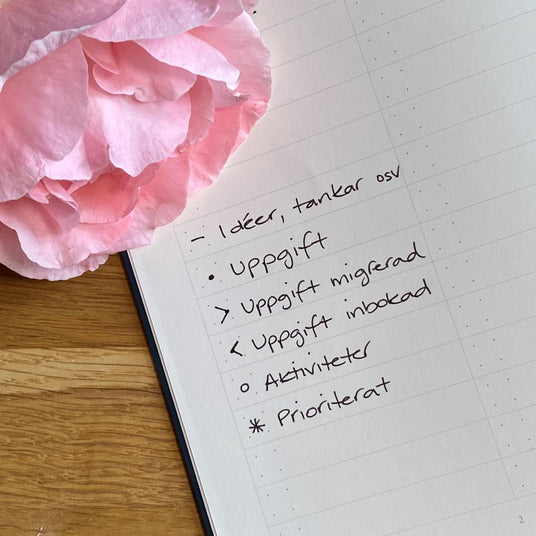 – Idéer, tankar osv
• Uppgift
> Uppgift migrerad
< Uppgift inbokad
o Aktiviteter
* Prioriterat
2